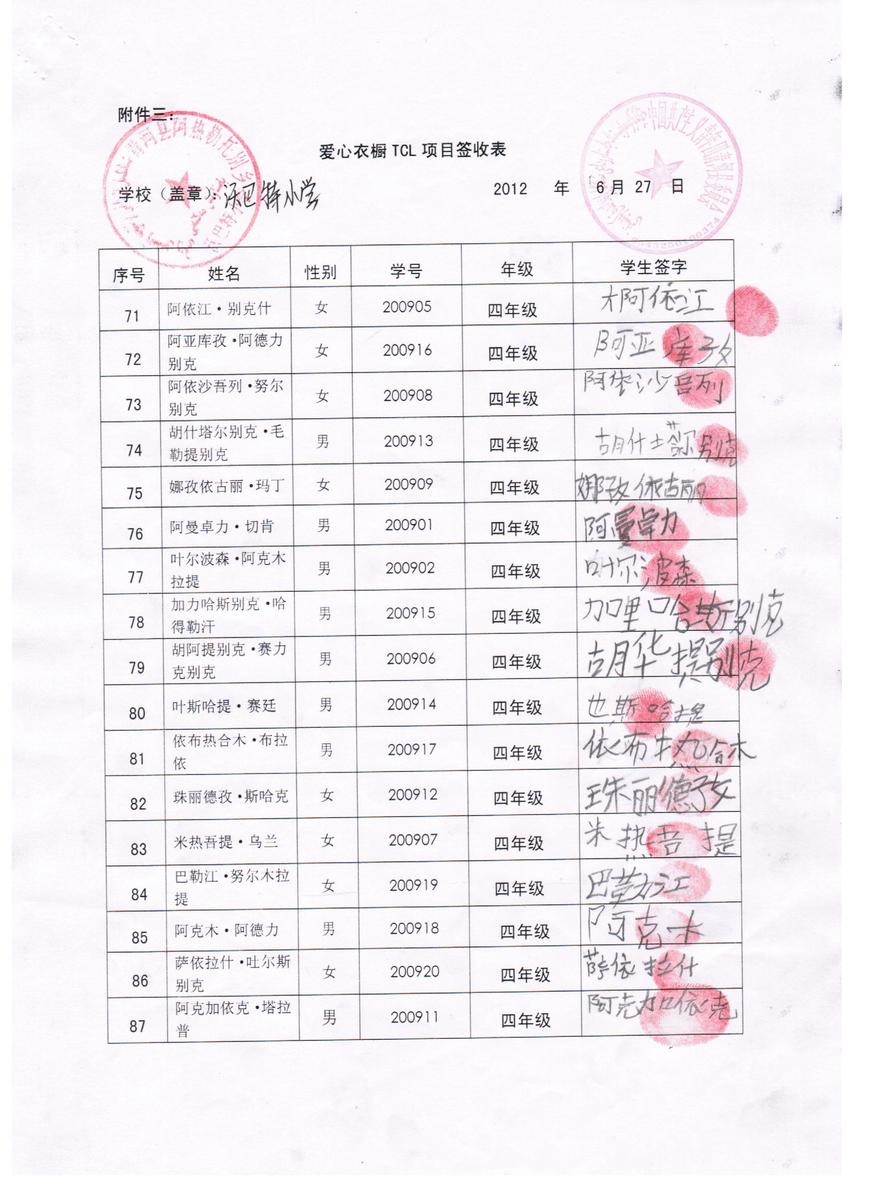 附件三:
爱心衣橱 TCL 项目签收表
学校（盖章）：沃巴特小学 2012 年 6 月 27 日
序号 姓名 性别 学号 年级 学生签字
71 阿依江·别克什 女 200905 四年级 阿依江
72 阿亚库孜·阿德力别克 女 200916 四年级 阿亚库孜
73 阿依沙吾列·努尔别克 女 200908 四年级 阿依沙吾列
74 胡什塔尔别克·毛勒提别克 男 200913 四年级 胡什塔尔别克
75 娜孜依古丽·玛丁 女 200909 四年级 娜孜依古丽
76 阿曼卓力·切肯 男 200901 四年级 阿曼卓力
77 叶尔波森·阿克木拉提 男 200902 四年级 叶尔波森
78 加力哈斯别克·哈得勒汗 男 200915 四年级 加哩哈斯别克
79 胡阿提别克·赛力克别克 男 200906 四年级 胡华提别克
80 叶斯哈提·赛廷 男 200914 四年级 也斯哈提
81 依布热合木·布拉依 男 200917 四年级 依布热合木
82 珠丽德孜·斯哈克 女 200912 四年级 珠丽德孜
83 米热吾提·乌兰 女 200907 四年级 米热吾提
84 巴勒江·努尔木拉提 女 200919 四年级 巴勒江
85 阿克木·阿德力 男 200918 四年级 阿克木
86 萨依拉什·吐尔斯别克 女 200920 四年级 萨依拉什
87 阿克加依克·塔拉普 男 200911 四年级 阿克加依克